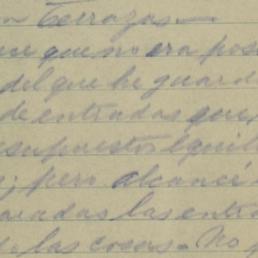 Terrazas.—
ce que no era pos
del que he guard
de entradas que,
supuestos equili
; pero alcancé
radas las entr
las cosas. No p